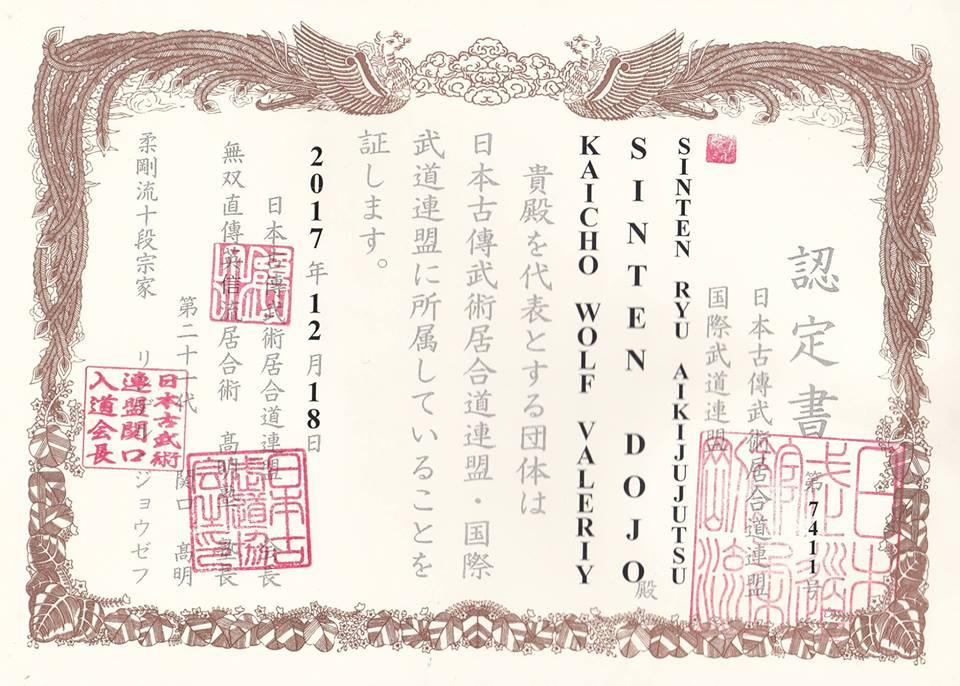 認定書
第7411号
日本古傳武術居合道連盟
国際武道連盟
SINTEN RYU AIKIJUJUTSU
SINTEN DOJO殿
KAICHO WOLF VALERIY
貴殿を代表とする団体は
日本古傳武術居合道連盟・国際
武道連盟に所属していることを
証します。
2017年12月18日
日本古傳武術居合道連盟 会長
無双直傳英信流居合術 髙明塾 塾長
第二十一代 関口 髙明
柔剛流十段宗家 ジョウゼフ
日本古武術
連盟関口
入道会長